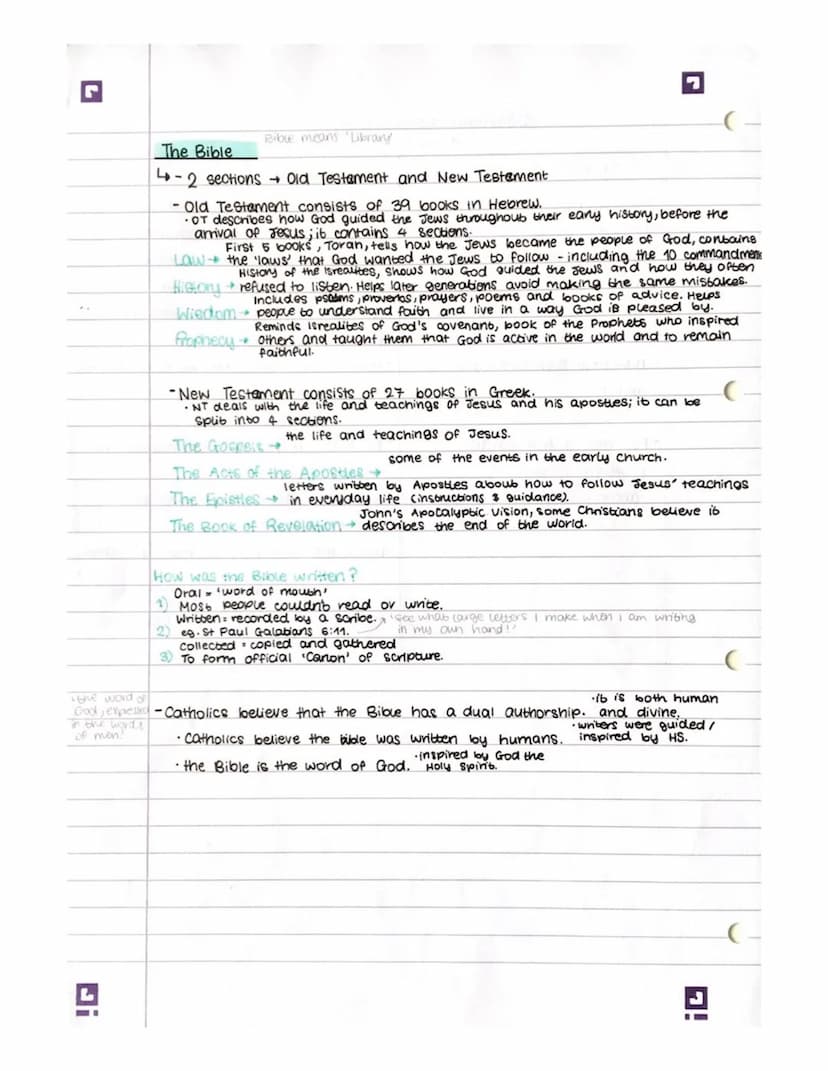 Bible means 'Library'
The Bible
↳ - 2 sections → Old Testament and New Testament
- Old Testament consists of 39 books in Hebrew.
· OT describes how God guided the Jews throughout their early history, before the
arrival of Jesus; it contains 4 sections.
First 5 books, Torah, tells how the Jews became the people of God, contains
Law → the 'laws' that God wanted the Jews to follow - including the 10 commandments
History of the Isrealites, shows how God guided the Jews and how they often
History → refused to listen. Helps later generations avoid making the same mistakes.
Includes psalms, proverbs, prayers, poems and books of advice. Helps
Wisdom → people to understand faith and live in a way God is pleased by.
Reminds Isrealites of God's covenant, book of the Prophets who inspired
Prophecy → others and taught them that God is active in the world and to remain
faithful.
- New Testament consists of 27 books in Greek.
· NT deals with the life and teachings of Jesus and his apostles; it can be
split into 4 sections.
The Gospels → the life and teachings of Jesus.
The Acts of the Apostles → some of the events in the early church.
letters written by Apostles about how to follow Jesus' teachings
The Epistles → in everyday life (instructions & guidance).
John's Apocalyptic vision, some Christians believe it
The Book of Revelation → describes the end of the world.
How was the Bible written?
Oral = 'word of mouth'
1) Most people couldn't read or write.
Written = recorded by a scribe. 'see what large letters I make when i am writing
2) eg. St Paul Galatians 6:11. in my own hand!'
Collected = copied and gathered
3) To form official 'Canon' of scripture.
'the word of
God, expressed
in the words
of men'
- Catholics believe that the Bible has a dual authorship. · it is both human
and divine.
· Catholics believe the bible was written by humans. · writers were guided /
inspired by HS.
· the Bible is the word of God. · inspired by God the
Holy Spirit.